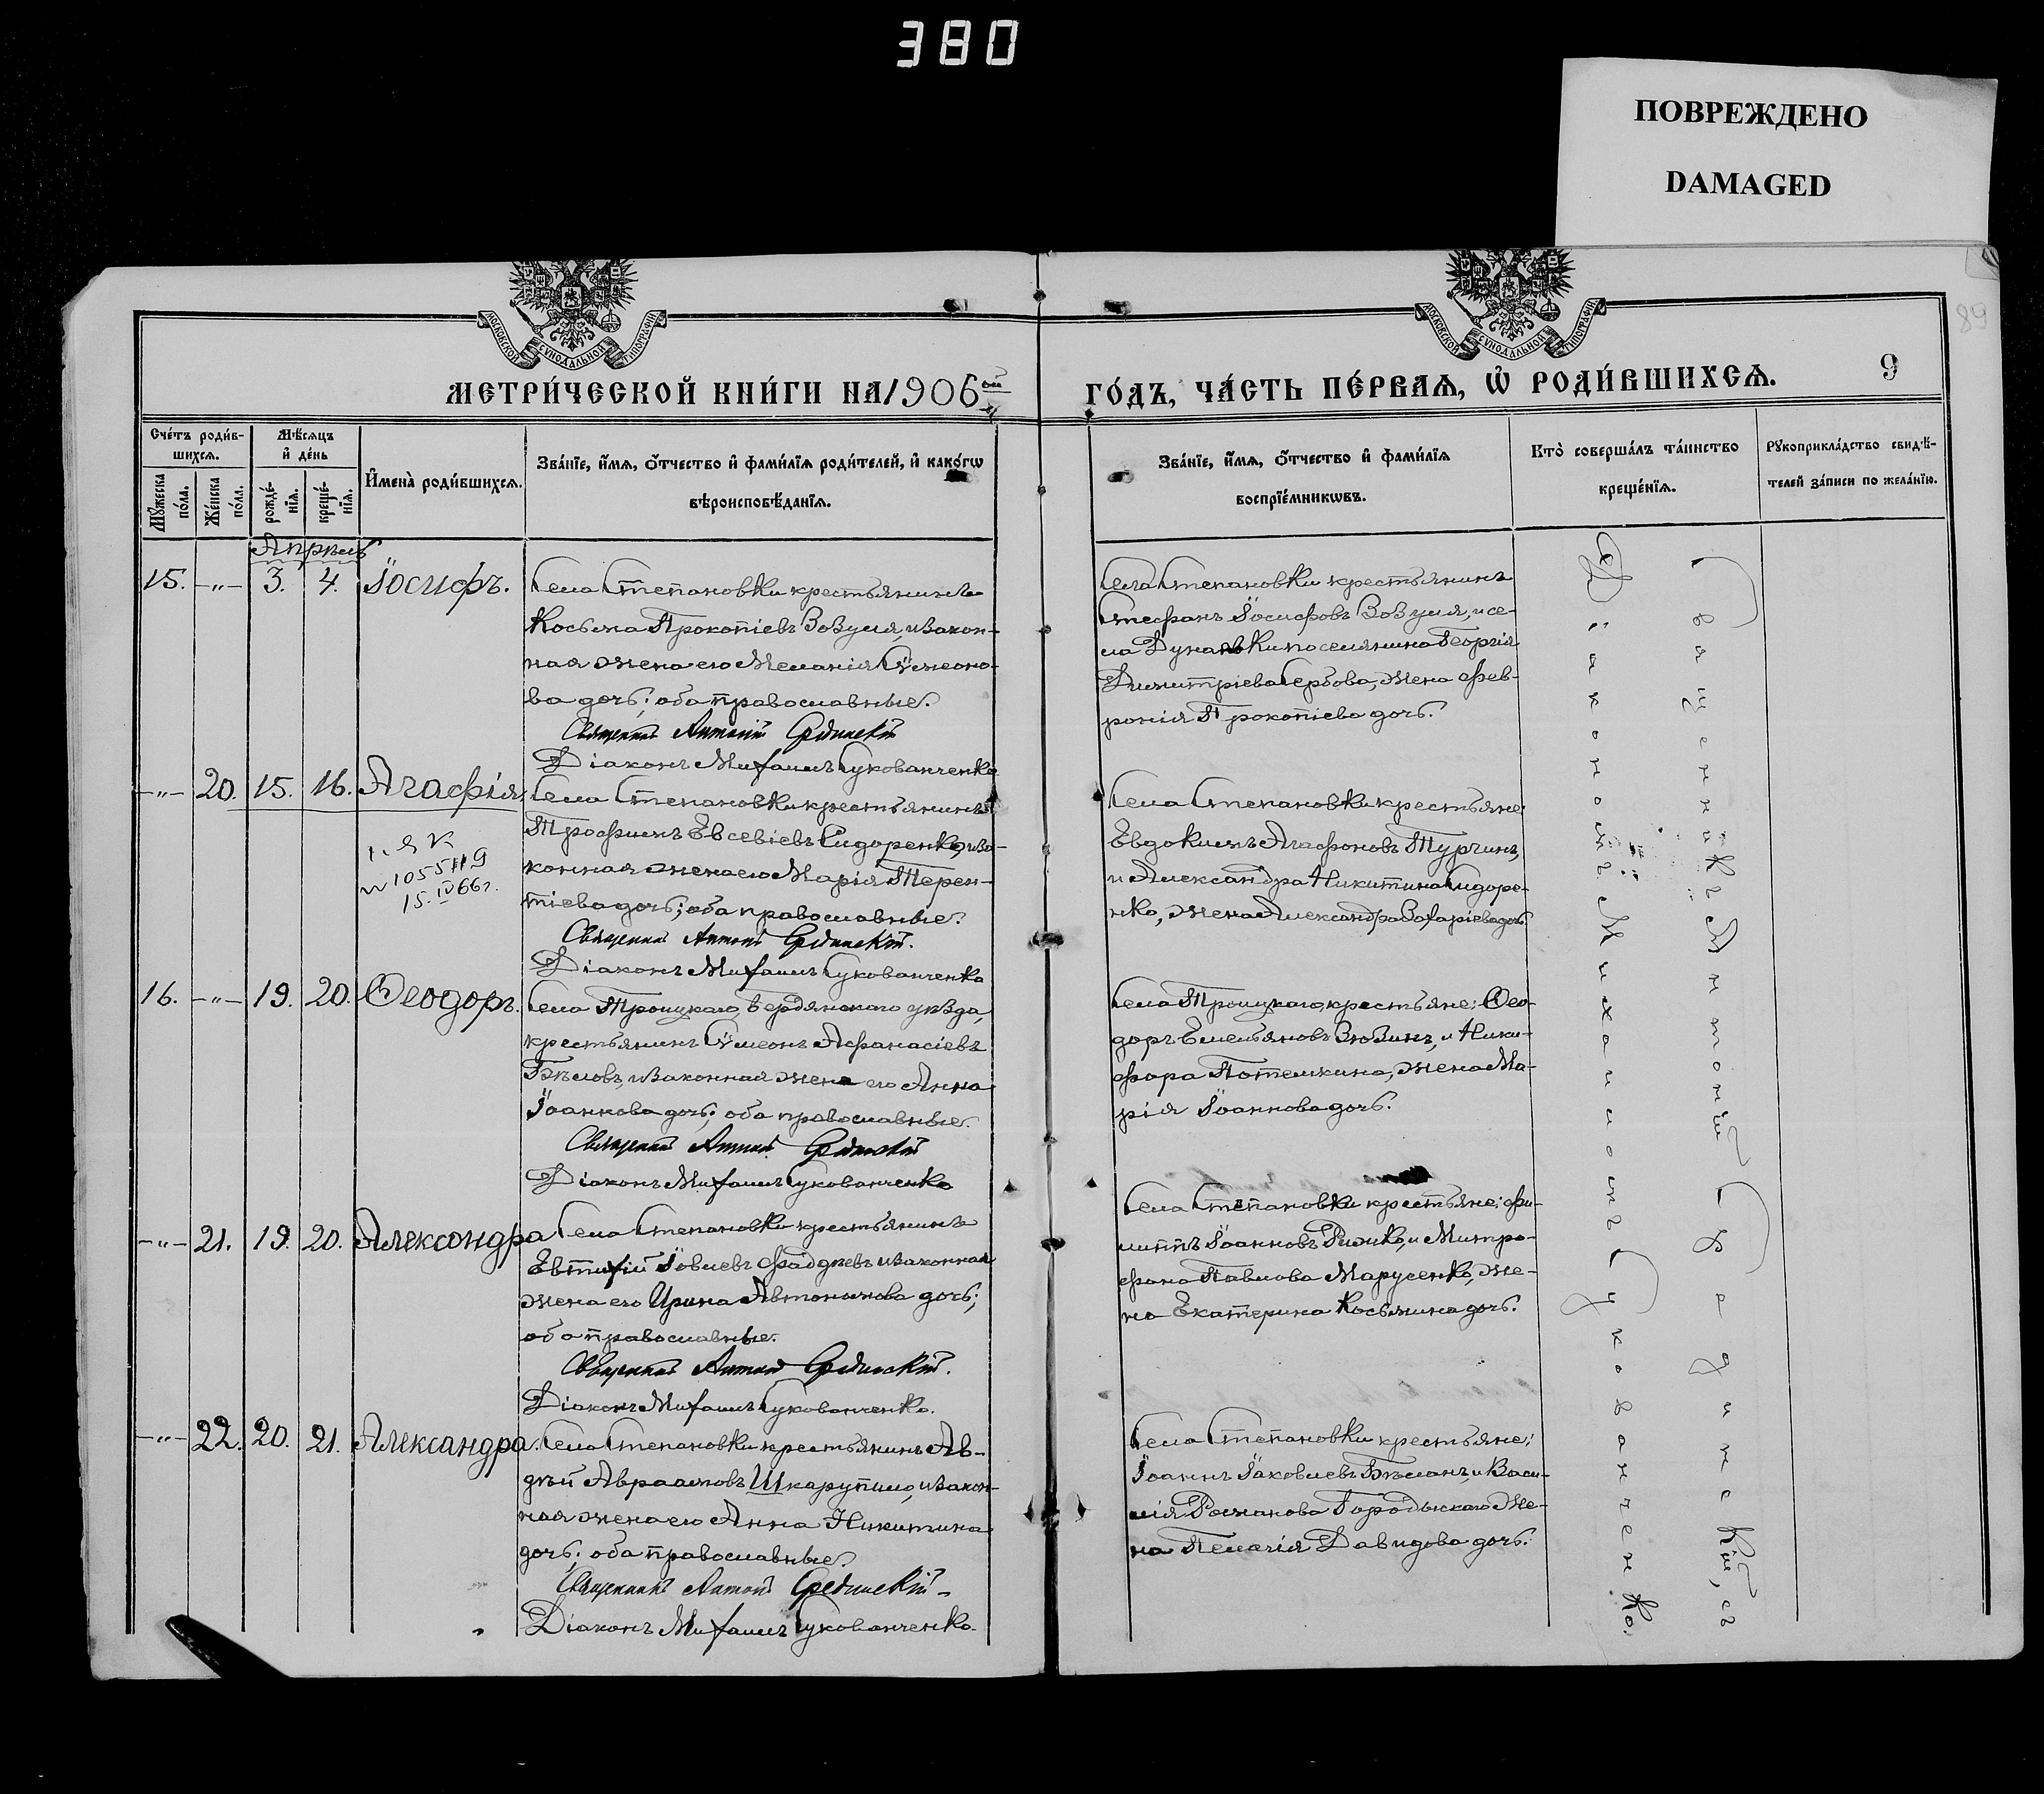 380
ПОВРЕЖДЕНО
DAMAGED
89
МОСКОВСКОЙ СѴНОДАЛЬНОЙ ТИПОГРАФІИ
МОСКОВСКОЙ СѴНОДАЛЬНОЙ ТИПОГРАФІИ
МЕТРИ́ЧЕСКОЙ КНИ́ГИ НА 1906 ой
ГО́ДЪ, ЧА́СТЬ ПЕ́РВАѦ, Ѡ҆ РОДИ́ВШИХСѦ.
9
Сче́тъ роди́в-
шихсѧ.
Мꙋ́жеска по́ла.
Же́нска по́ла.
Мѣ́сѧцъ
и҆ де́нь
рожде́-
нїѧ.
креще́-
нїѧ.
И҆мена̀ роди́вшихсѧ.
Зва́нїе, и҆́мѧ, ѻ҆́тчество и҆ фами́лїѧ роди́телей, и҆ како́гѡ
вѣроисповѣ́данїѧ.
Зва́нїе, и҆́мѧ, ѻ҆́тчество и҆ фами́лїѧ
воспрїе́мникѡвъ.
Кто̀ соверша́лъ та́инство
креще́нїѧ.
Рꙋкоприкла́дство свидѣ́-
телей за́писи по жела́нїю.
Апрѣль
15. -"- 3. 4. Іосифъ.
Села Степановки крестьянинъ
Косьма Прокопіевъ Зозуля, и закон-
ная жена его Меланія Сѵмеоно-
ва дочь; оба православные.
Священникъ Антоній Срединскій
Діаконъ Михаилъ Сукованченко
Села Степановки крестьянинъ
Стефанъ Іосифовъ Зозуля, и се-
ла Дунаевки поселянина Георгія
Димитріева Сербова, жена Фев-
ронія Прокопіева дочь.
-"- 20. 15. 16. Агафія.
N 105519
15.IV 66 г.
Села Степановки крестьянинъ
Трофимъ Евсевіевъ Сидоренко, и за-
конная жена его Марія Терен-
тіева дочь; оба православные.
Священникъ Антоній Срединскій.
Діаконъ Михаилъ Сукованченко
Села Степановки крестьяне:
Евдокимъ Агафоновъ Турчинъ,
и Александра Никитина Сидоре-
нко, жена Александра Захаріева дочь.
16. -"- 19. 20. Ѳеодоръ.
Села Троицкаго, Бердянскаго уѣзда,
крестьянинъ Сѵмеонъ Афанасіевъ
Бѣловъ, и законная жена его Анна
Іоаннова дочь; оба православные.
Священникъ Антоній Срединскій
Діаконъ Михаилъ Сукованченко
Села Троицкаго, крестьяне: Ѳео-
доръ Емельяновъ Зюзинъ, и Ники-
фора Потемкина, жена Ма-
рія Іоаннова дочь.
-"- 21. 19. 20. Александра
Села Степановки крестьянинъ
Евтихій Іовлевъ Фаддѣевъ и законная
жена его Ирина Автономова дочь;
оба православные.
Священникъ Антоній Срединскій.
Діаконъ Михаилъ Сукованченко.
Села Степановки крестьяне: Фи-
липпъ Іоанновъ Рижко, и Митро-
фана Павлова Марусенко, же-
на Екатерина Косьмина дочь.
-"- 22. 20. 21. Александра.
Села Степановки крестьянинъ Ав-
дѣй Авраамовъ Шкарупило, и закон-
ная жена его Анна Никитина
дочь; оба православные.
Священникъ Антоній Срединскій
Діаконъ Михаилъ Сукованченко.
Села Степановки крестьяне:
Іоаннъ Іаковлевъ Бѣланъ, и Васи-
лія Романова Городыскаго же-
на Пелагія Давидова дочь.
Священникъ Антоній Срединскій, съ
Діакономъ Михаиломъ Сукованченко.